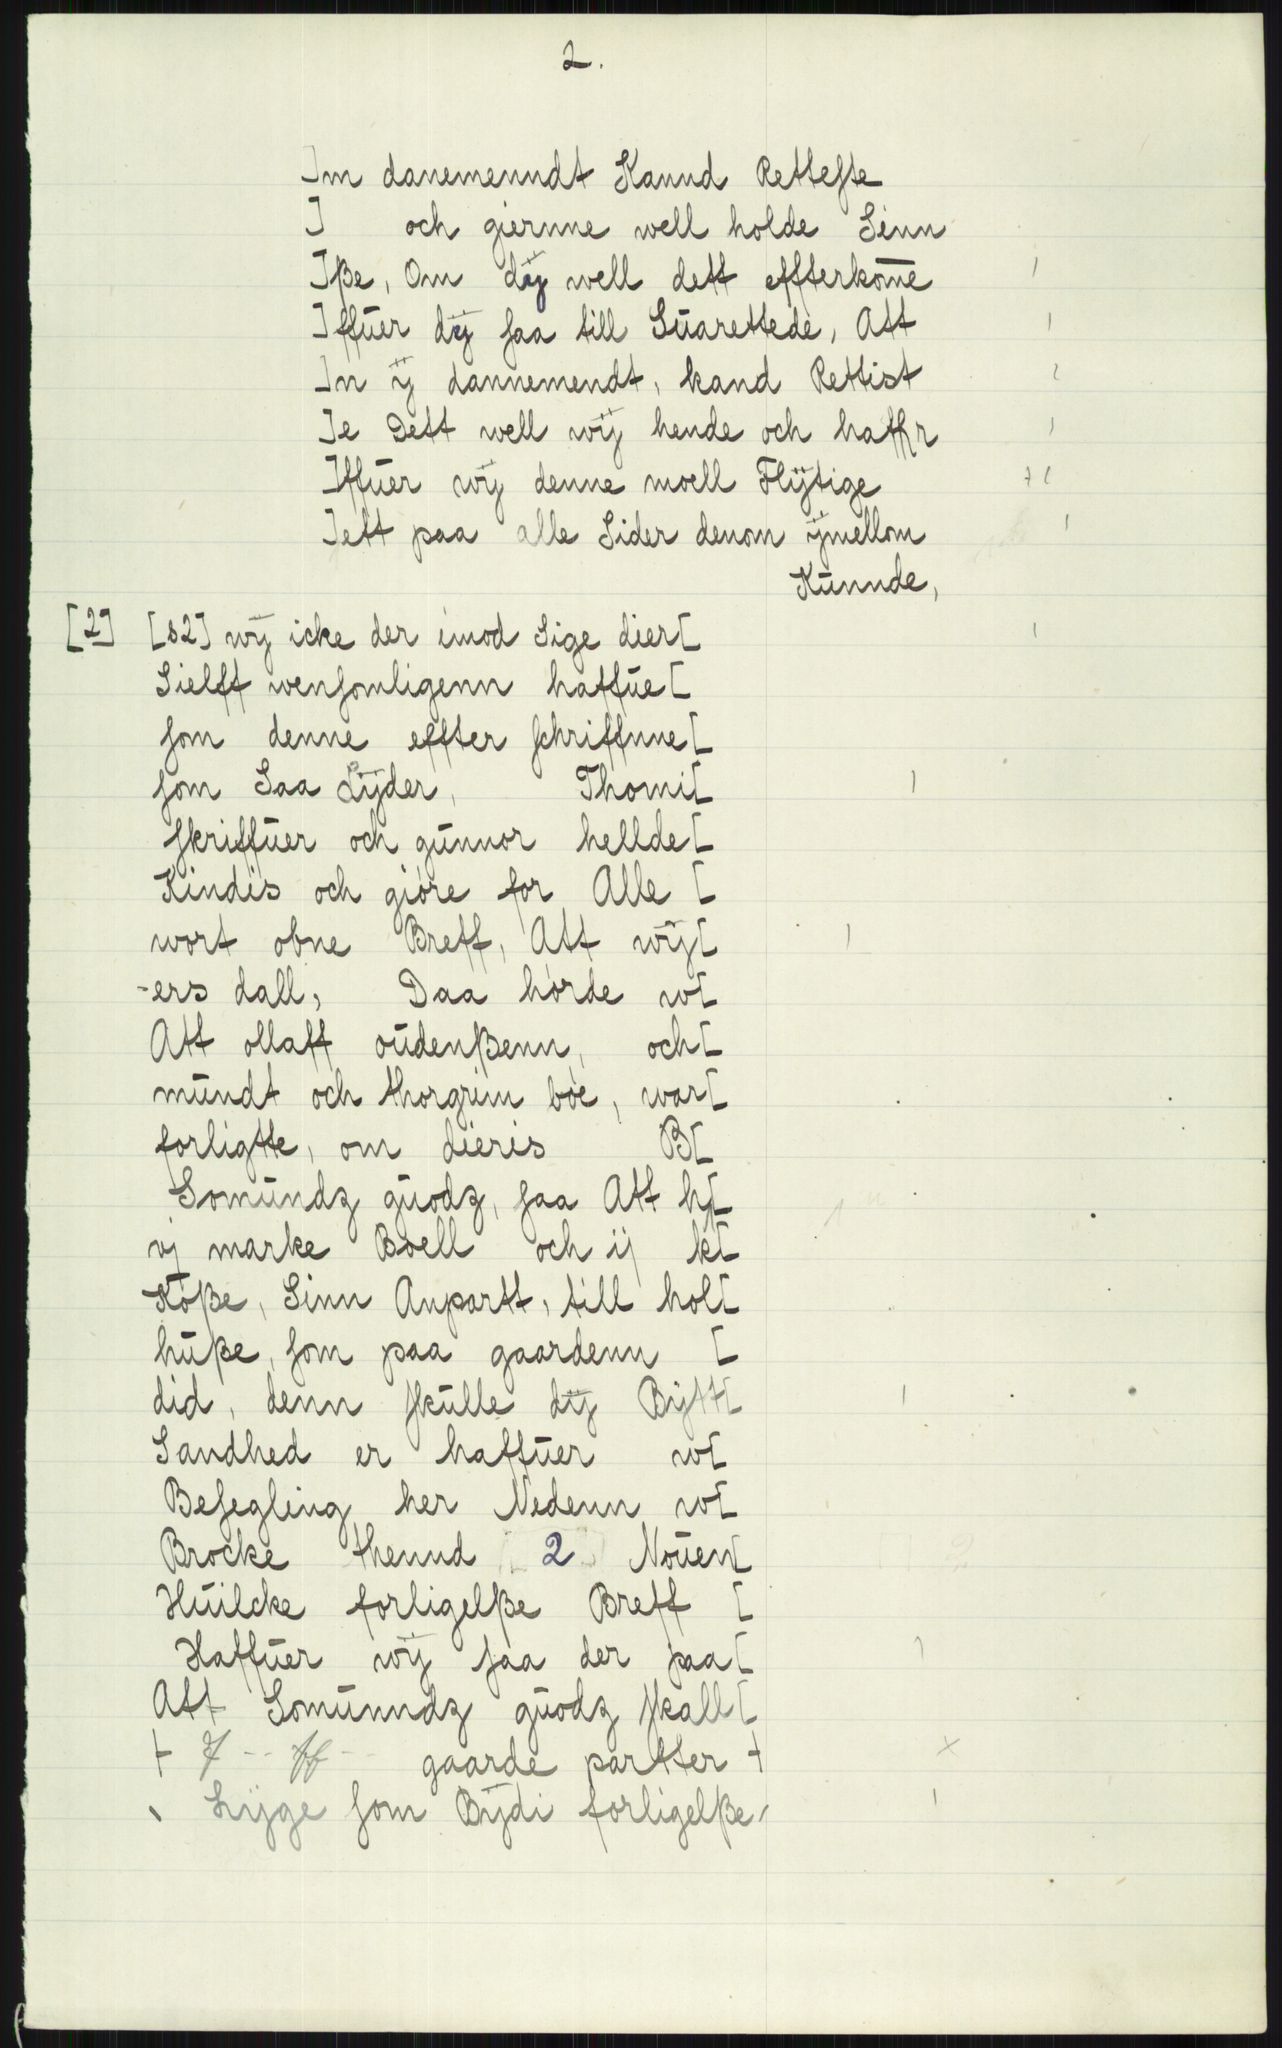 2.
]m danemenndt Kannd Rettefte
] och giernne well holde Sinn
]ße, Om dÿ well dett effterkom̅e
]ffŭer dÿ saa till Sŭarettede, Att
]n ÿ dannemendt, kand Rettist
]e Dett well wÿ hende och haffr
]ffŭer wÿ denne moell Flÿtige
]ett paa alle Sider denom ÿmellom
Kŭnnde,
[2] [s2] wÿ icke der imod Sige dier[
Sielff wensomligenn haffŭe[
som denne effter schriffnne[
som Saa Lÿder, Thomi[
skriffŭer och gŭnnor hellde[
Kindis och giöre for Alle [
wort obne Breff, Att wÿ[
-ers dall, Daa hörde w[
Att ollaff oŭdenßenn, och[
mŭndt och thorgrim böe, war[
forligtte, om dieris B[
Somŭndz gŭodz, saa Att h[
vj marke Boell och ij k[
Köße, Sinn Anpartt, till hol[
hŭße, som paa gaardenn [
did, denn skŭlle dÿ Bÿtt[
Sandhed er haffŭer w[
Besegling her Nedenn w[
Brocke thennd [2] Noŭen[
Hŭilcke forligelße Breff [
Haffŭer wÿ saa der paa[
Att Somŭnndz gŭodz skall[
ff gaarde partter
Lÿge som Bÿdi forligelße